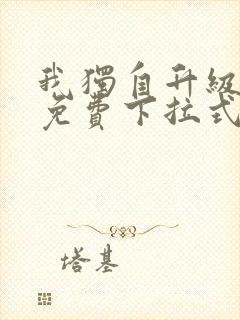 我獨自升級
免費下拉式
塔基